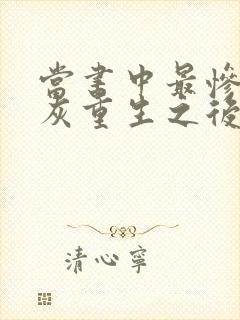 當書中最慘
灰重生之後
清心寧